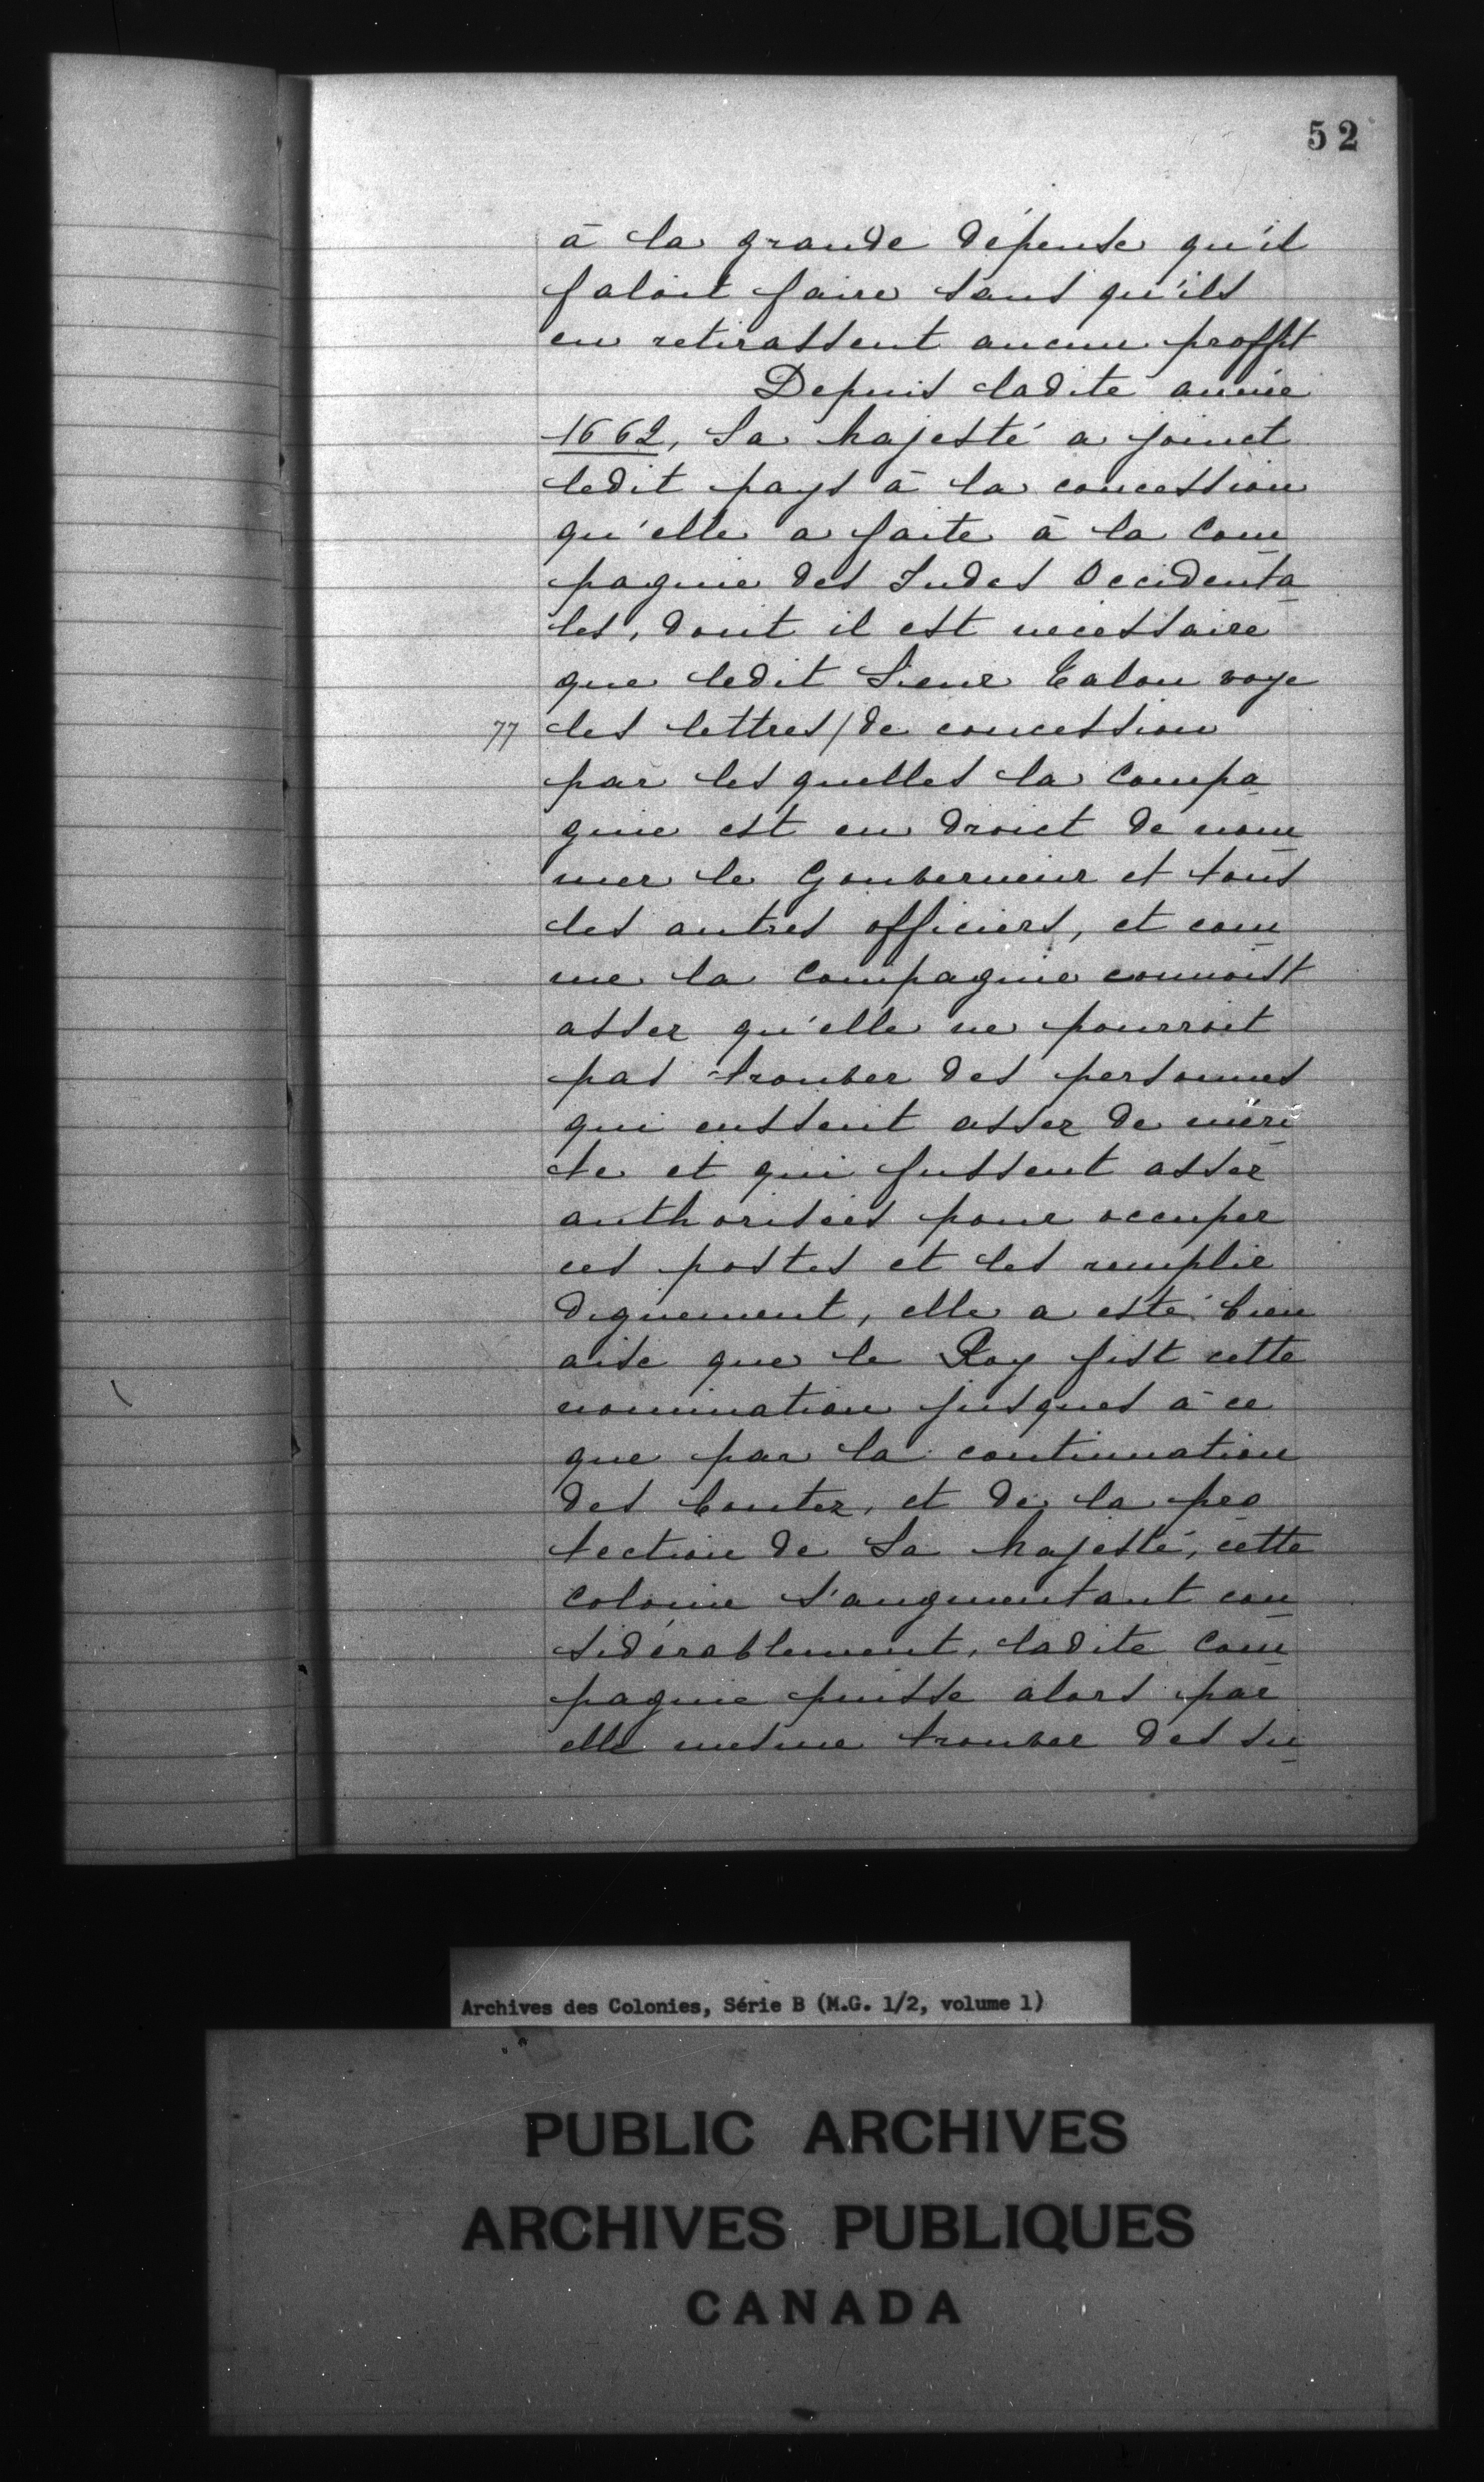 52
à la grande dépense qu'il
faloit faire sans qu'ils
en retirassent aucun proffit
Depuis ladite année
1662, Sa Majesté a joinct
ledit pays à la concession
qu'elle a faite à la Com
pagnie des Indes Occidenta
les, dont il est necessaire
que ledit Sieur Talon voye
77 les lettres/de concession
par lesquelles la Compa
gnie est en droict de nom
mer le Gouberneur et tous
les autres officiers, et com
me la Compagnie connoist
assez qu'elle ne pourroit
pas trouber des personnes
qui eussent assez de méri
te et qui fussent assez
authorisées pour occuper
ces postes et les remplir
dignement, elle a esté bien
aise que le Roy fist cette
nomination jusques à ce
que par la continuation
des bontez, et de la pro
tection de Sa Majesté, cette
colonie s'augmentant con
sidérablement, ladite Com
pagnie puisse alors par
elle mesme trouber des su
Archives des Colonies, Série B (M.G. 1/2, volume 1)
PUBLIC ARCHIVES
ARCHIVES PUBLIQUES
CANADA